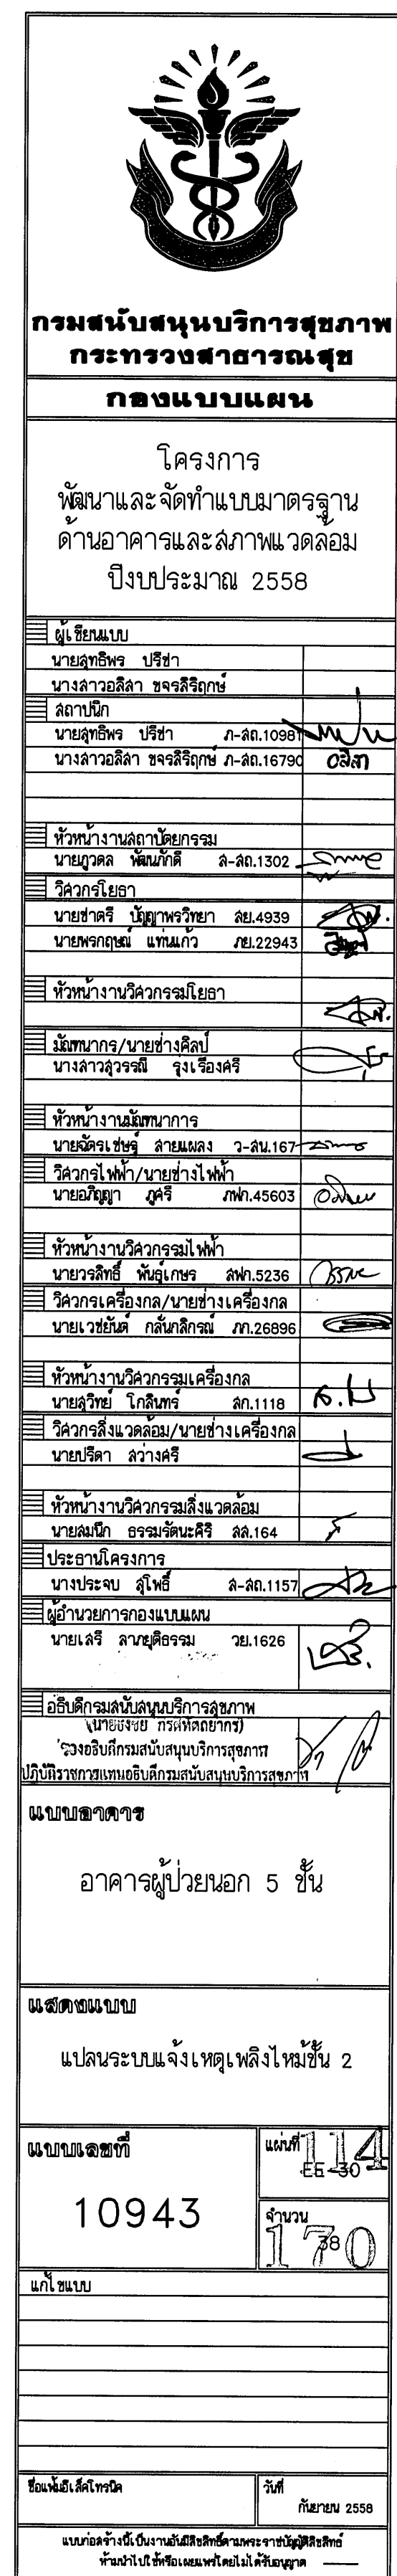 กรมสนับสนุนบริการสุขภาพ
กระทรวงสาธารณสุข
กองแบบแผน
โครงการ
พัฒนาและจัดทำแบบมาตรฐาน
ด้านอาคารและสภาพแวดล้อม
ปีงบประมาณ 2558
ผู้เขียนแบบ
นายสุทธิพร ปรีชา
นางสาวอลิสา ขจรสิริฤกษ์
สถาปนิก
นายสุทธิพร ปรีชา ภ-สถ.10981
นางสาวอลิสา ขจรสิริฤกษ์ ภ-สถ.16790 อลิสา
หัวหน้างานสถาปัตยกรรม
นายภูวดล พัฒนภักดี ส-สถ.1302
วิศวกรโยธา
นายชาตรี ปัญญาพรวิทยา สย.4939
นายพรกฤษณ์ แท่นแก้ว ภย.22943
หัวหน้างานวิศวกรรมโยธา
มัณฑนากร/นายช่างศิลป์
นางสาวสุวรรณี รุ่งเรืองศรี
หัวหน้างานมัณฑนาการ
นายฉัตรเชษฐ์ สายแผลง ว-สน.167
วิศวกรไฟฟ้า/นายช่างไฟฟ้า
นายอภิญญา ภูศรี ภฟก.45603
หัวหน้างานวิศวกรรมไฟฟ้า
นายวรสิทธิ์ พันธุ์เกษร สฟก.5236
วิศวกรเครื่องกล/นายช่างเครื่องกล
นายเวชยันต์ กลั่นกสิกรณ์ ภก.26896
หัวหน้างานวิศวกรรมเครื่องกล
นายสุวิทย์ โกสินทร์ สก.1118
วิศวกรสิ่งแวดล้อม/นายช่างเครื่องกล
นายปรีดา สว่างศรี
หัวหน้างานวิศวกรรมสิ่งแวดล้อม
นายสมนึก ธรรมรัตนะศิริ สส.164
ประธานโครงการ
นางประจบ สุโพธิ์ ส-สถ.1157
ผู้อำนวยการกองแบบแผน
นายเสรี ลาภยุติธรรม วย.1626
อธิบดีกรมสนับสนุนบริการสุขภาพ
(นายธงชัย กีรติหัตถยากร)
รองอธิบดีกรมสนับสนุนบริการสุขภาพ
ปฏิบัติราชการแทนอธิบดีกรมสนับสนุนบริการสุขภาพ
แบบอาคาร
อาคารผู้ป่วยนอก 5 ชั้น
แสดงแบบ
แปลนระบบแจ้งเหตุเพลิงไหม้ชั้น 2
แบบเลขที่
10943
แผ่นที่ 114
EE-30
จำนวน
38
170
แก้ไขแบบ
ชื่อแฟ้มอิเล็คโทรนิค
วันที่
กันยายน 2558
แบบก่อสร้างนี้เป็นงานอันมีลิขสิทธิ์ตามพระราชบัญญัติลิขสิทธิ์
ห้ามนำไปใช้หรือเผยแพร่โดยไม่ได้รับอนุญาต